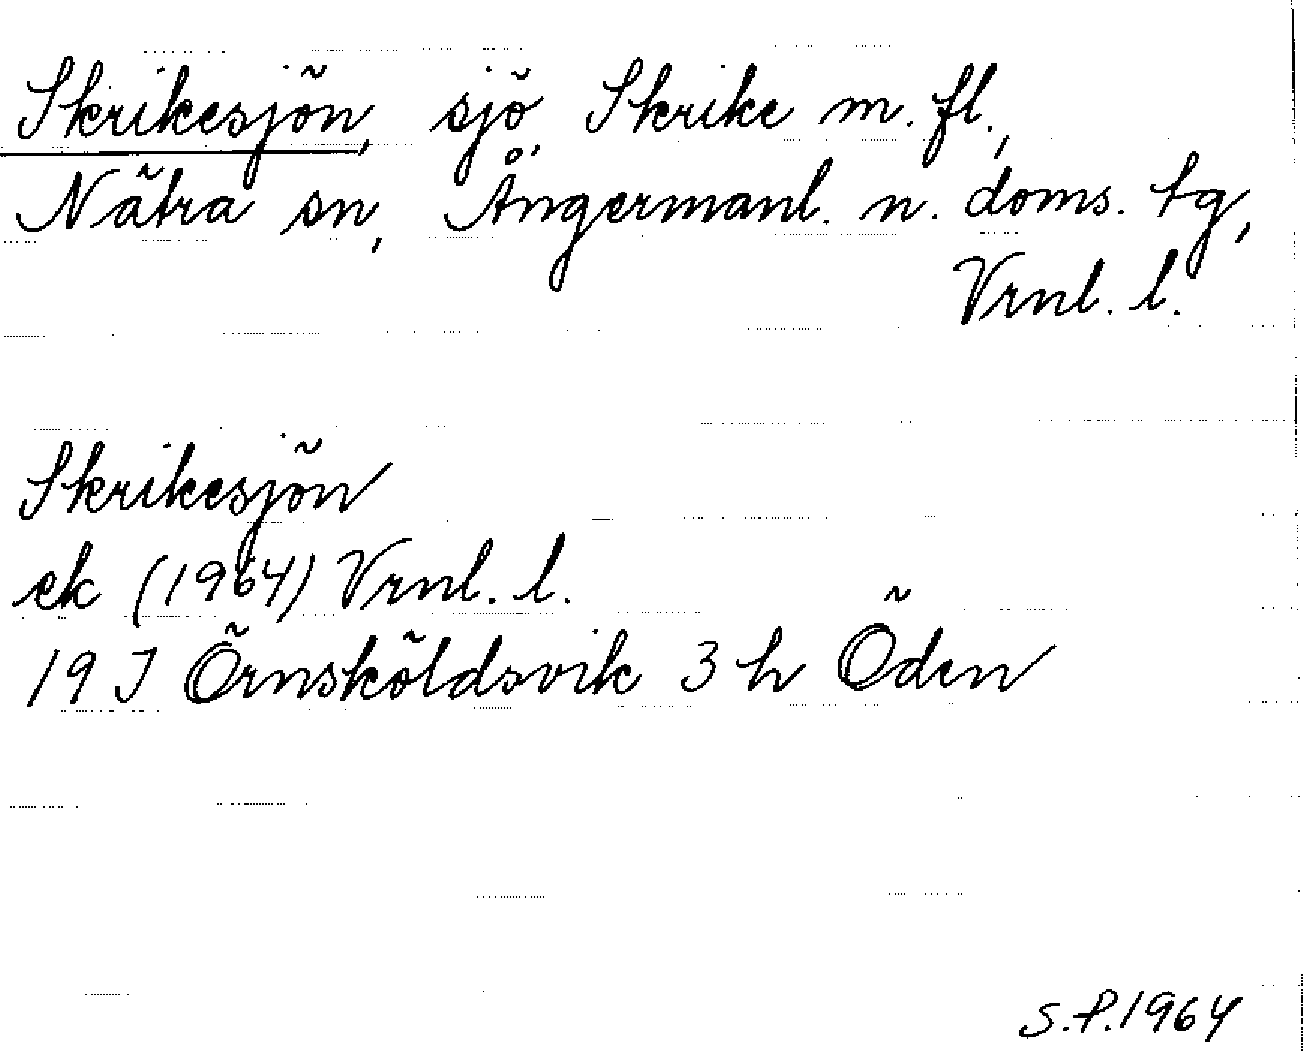 Skrikesjön, sjö, Skrike m. fl.,
Nätra sn, Ångermanl. n. doms. tg,
Vrnl. l.
Skrikesjön
ek (1964) Vrnl. l.
19 J Örnsköldsvik 3 h Öden
S.P. 1964